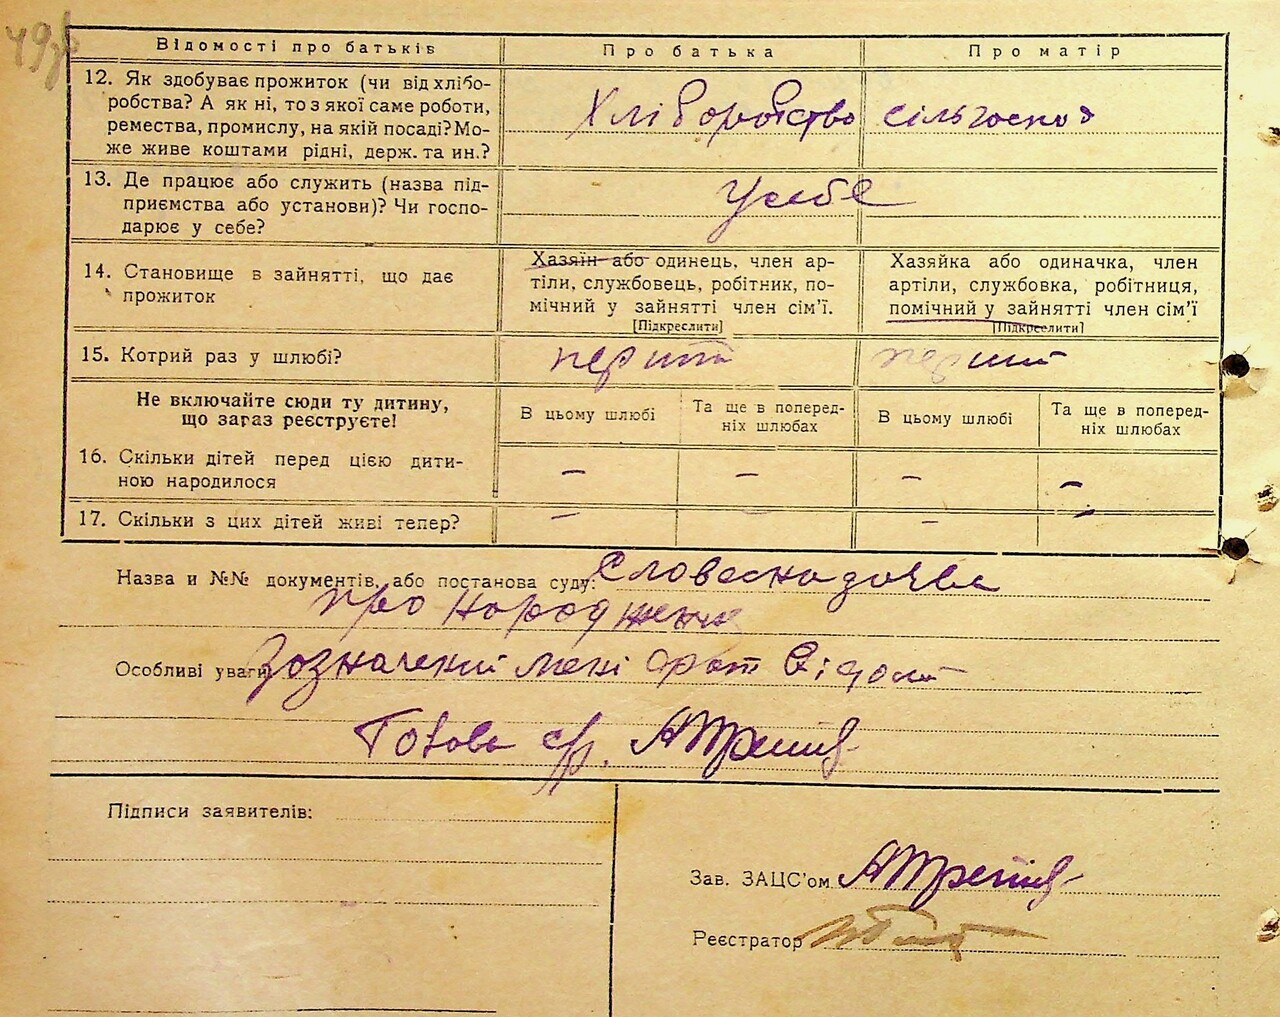 49
Відомості про батьків Про батька Про матір
12. Як здобуває прожиток (чи від хлібо-
робства? А як ні, то з якої саме роботи,
ремества, промислу, на якій посаді? Мо-
же живе коштами рідні, держ. та ин.?
Хліборобство сільгоспод
13. Де працює або служить (назва під-
приємства або установи)? Чи госпо-
дарює у себе?
У себе
14. Становище в зайнятті, що дає
прожиток
Хазяїн або одинець, член ар-
тіли, службовець, робітник, по-
мічний у зайнятті член сім'ї.
[Підкреслити]
Хазяйка або одиначка, член
артіли, службовка, робітниця,
помічний у зайнятті член сім'ї
[Підкреслити]
15. Котрий раз у шлюбі? перший перший
Не включайте сюди ту дитину,
що зараз реєструєте!
В цьому шлюбі
Та ще в поперед-
ніх шлюбах
В цьому шлюбі
Та ще в поперед-
ніх шлюбах
16. Скільки дітей перед цією дити-
ною народилося
— — — —
17. Скільки з цих дітей живі тепер?
— — — —
Назва и №№ документів, або постанова суду: Словесна заява
про народження
Особливі уваги Зозначений мені
Голова с/р.
Підписи заявителів:
Зав. ЗАЦС'ом
Реєстратор